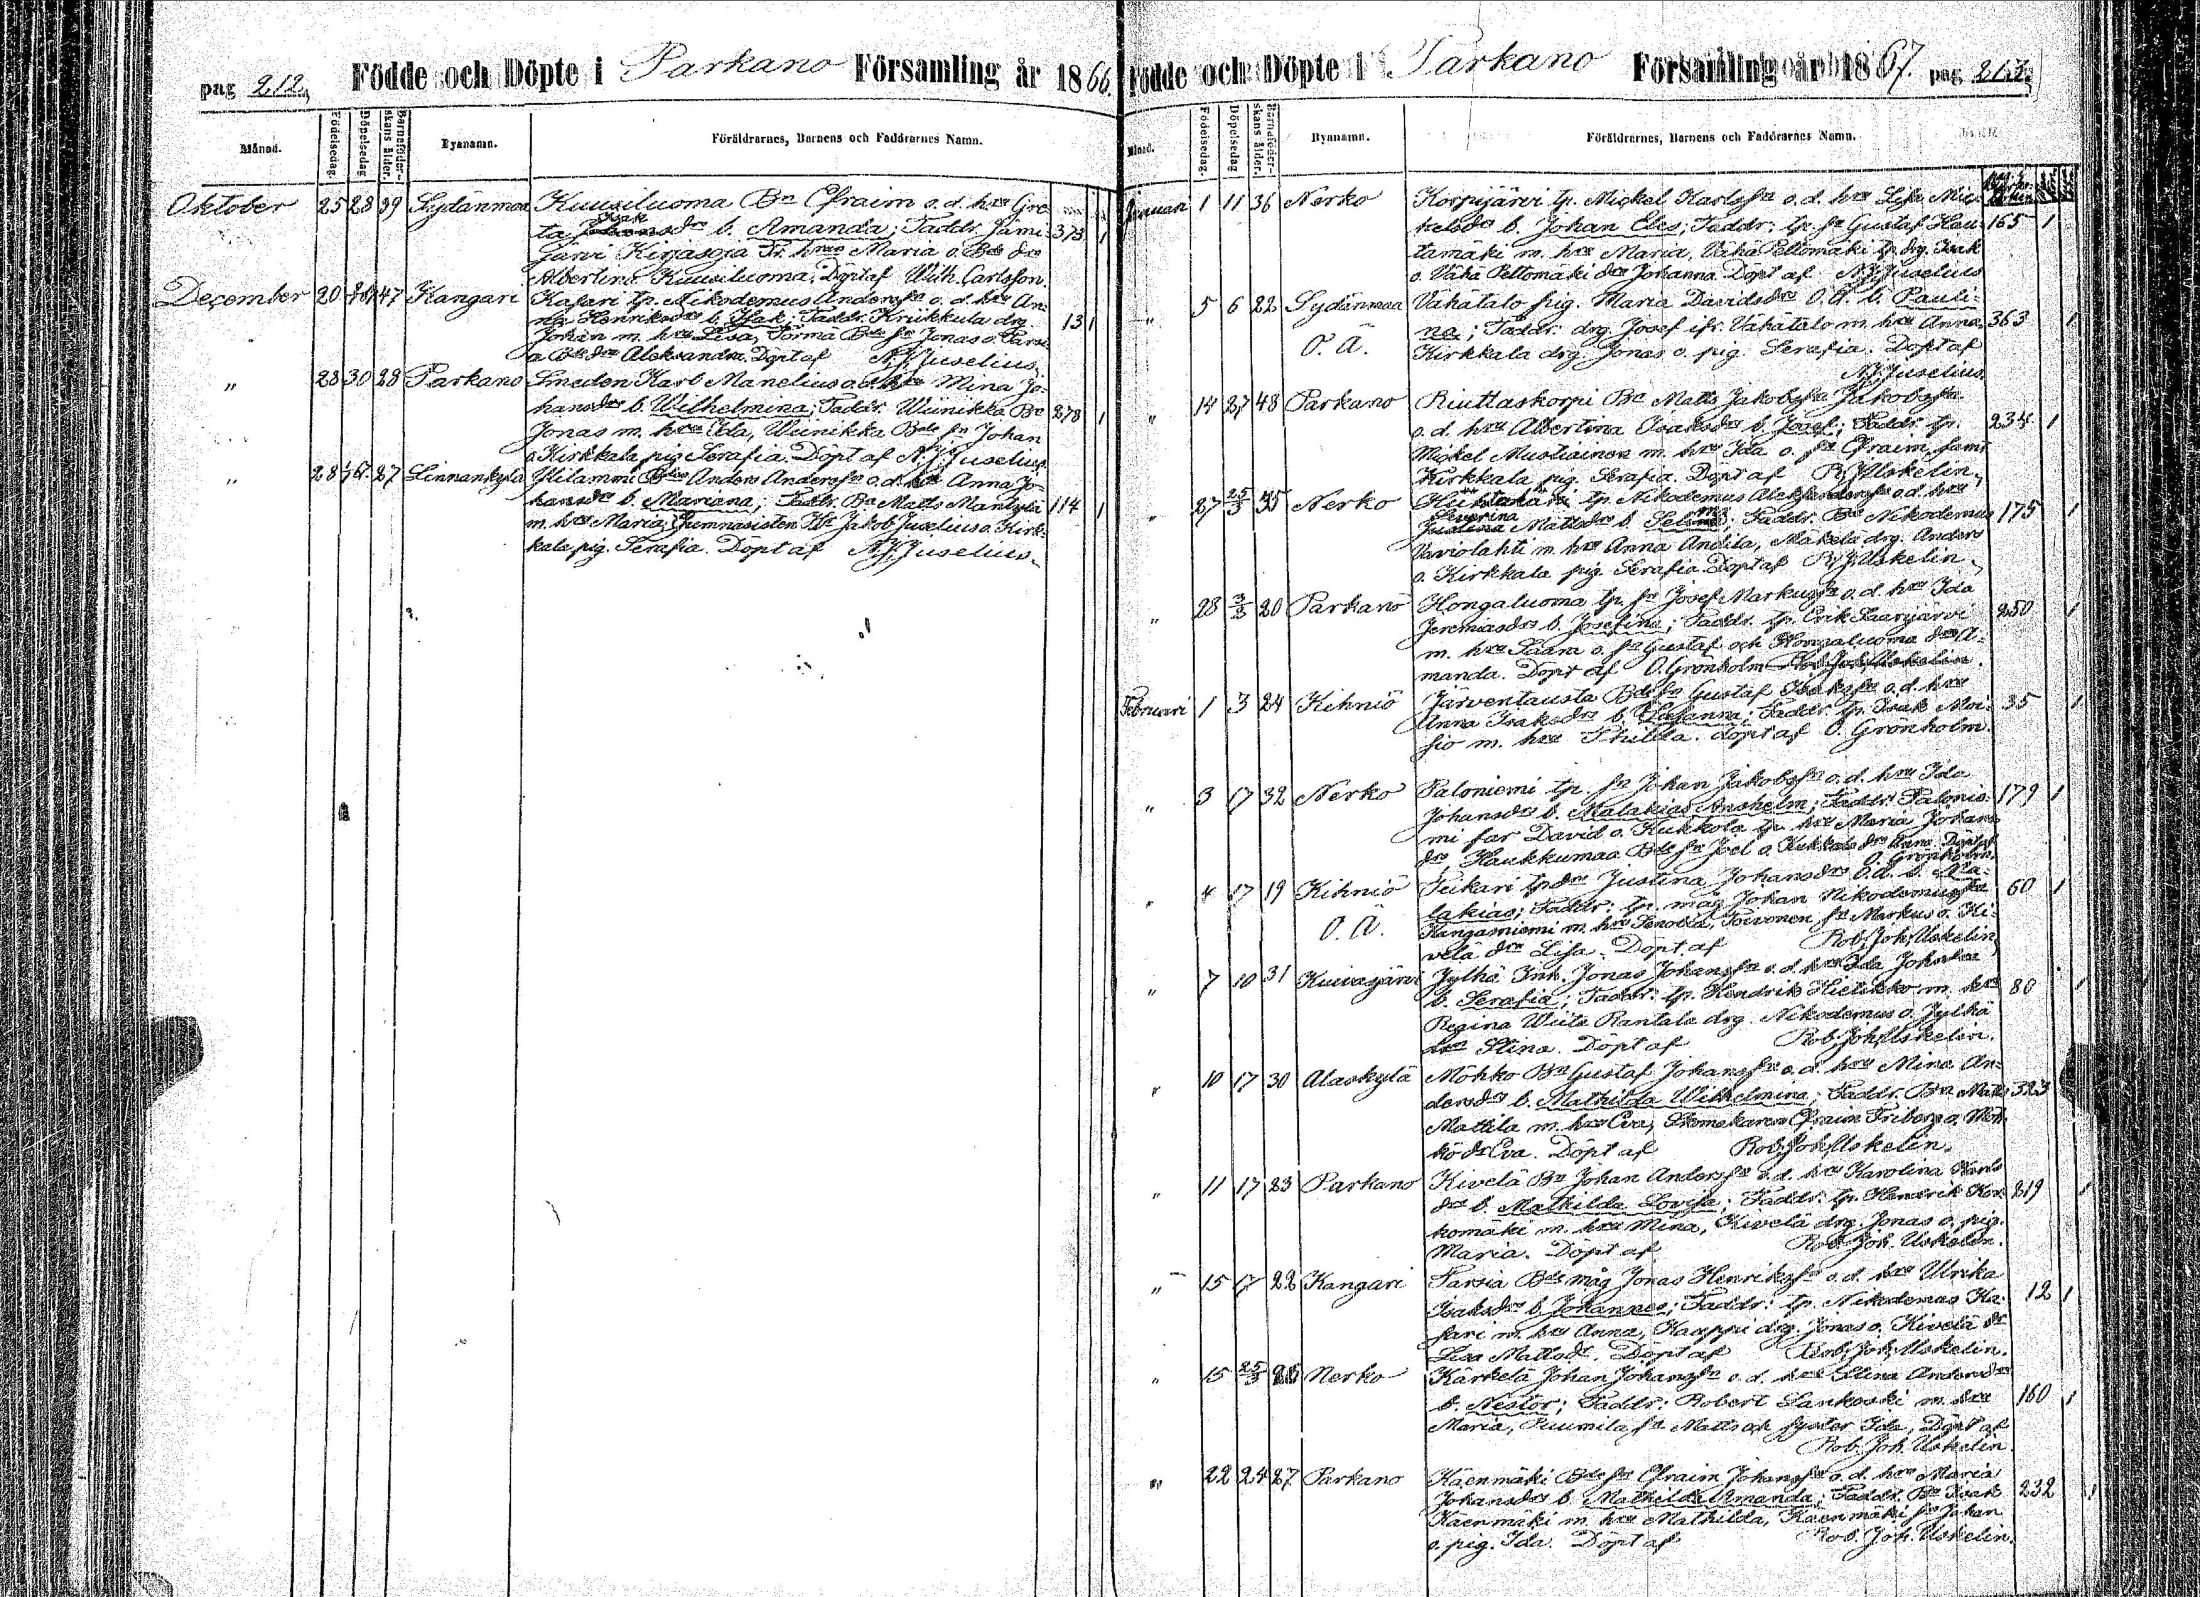 pag 212.
Födde och Döpte i Parkano Församling år 1866.
Månad. Födelsedag. Döpelsedag. Barnaföderskans ålder. Bynamn. Föräldrarnes, Barnens och Faddrarnes Namn.
Oktober 25 28 39 Sydänmaa Kuusiluoma Bn Efraim o. d. hru Gre-
ta Isak dr b. Amanda; Faddr. Jämi- 373 1
järvi Kirjasoja Fr. hru Maria o. Bds dr
Albertina Kuusiluoma. Döpt af Wilh. Carlsson.
December 20 47 Kangari Kafari tp. Nikodemus Andersfn o. d. hru An-
na Henriksdr b. Isak; Faddr. Kriikkula drg 13 1
Johan m. hru Lisa, Törmä Bds fn Jonas o. Tarsi-
a Bds dr Aleksandra. Döpt af A. J. Juselius.
" 28 30 28 Parkano Smeden Karl Manelius o. d. hru Mina Jo-
hansdr b. Wilhelmina; Faddr. Wiinikka Bn 278 1
Jonas m. hru Ida, Wiinikka Bds fn Johan
o. Kirkkala pig. Serafia. Döpt af A. J. Juselius.
" 28 27 Linnankylä Ylilammi Anders Andersfn o. d. hru Anna Jo-
hansdr b. Mariana; Faddr. Bn Matts Mantylä 114 1
m. hru Maria, Gymnasisten Jakob Juselius o. Kirk-
kala pig. Serafia. Döpt af A. J. Juselius.
Födde och Döpte i Parkano Församling år 1867. pag 213.
Månad. Födelsedag. Döpelsedag. Barnaföderskans ålder. Bynamn. Föräldrarnes, Barnens och Faddrarnes Namn.
Januari 1 11 36 Nerko Korpijärvi tp. Mickel Karlsfn o. d. hru Lisa Mic-
kelsdr b. Johan Eles; Faddr: tp. fn Gustaf Hau- 165 1
tamäki m. hru Maria, Vähä Peltomäki tp. drg. Isak
o. Vähä Peltomäki dr Johanna. Döpt af A. J. Juselius
" 5 6 22 Sydänmaa Vähätalo pig. Maria Davidsdr O. Ä. b. Pauli-
O. Ä. na; Faddr: drg. Josef ifr. Vähätalo m. hru Anna, 363 1
Kirkkala drg. Jonas o. pig. Serafia. Döpt af
A. J. Juselius.
" 14 27 48 Parkano Riuttaskorpi Bn Matts Jakobsfn
o. d. hru Albertina Isaksdr b. Josef; Faddr. tp. 234 1
Mickel Mustiainen m. hru Ida o. fn Efraim, samt
Kirkkala pig. Serafia. Döpt af R. J. Uskelin.
" 27 25/3 35 Nerko tp. Nikodemus o. d. hru
Severina Mattsdr b. Selma; Faddr. Bn Nikodemus 175 1
Variolahti m. hru Anna Andila, Mäkelä drg. Anders
o. Kirkkala pig. Serafia. Döpt af R. J. Uskelin.
" 28 3/3 20 Parkano Hongaluoma tp. fn Josef Markusfn o. d. hru Ida
Jeremiasdr b. Josefina; Faddr. tp. Erik Saarijärvi 250 1
m. hru Saara o. fn Gustaf och Hongaluoma dr A-
manda. Döpt af O. Grönholm
Februari 1 3 24 Kihniö Järventausta Bds fn Gustaf Isaksfn o. d. hru
Anna Isaksdr b. Susanna; Faddr. tp. Isak Moi- 35 1
sio m. hru Thilda. döpt af O. Grönholm.
" 3 17 32 Nerko Paloniemi tp. fn Johan Jakobsfn o. d. hru Ida
Johansdr b. Malakias Anshelm; Faddr: Palonie- 179 1
mi far David o. Kukkola tp. hru Maria Johans-
dr, Haukkumaa Bds fn Joel o. Kukkola dr Anna. Döpt af
O. Grönholm.
" 4 17 19 Kihniö Teikari tp dr Justina Johansdr O. Ä. b. Ma-
O. Ä. lakias; Faddr: tp. måg Johan Nikodemusfn 60 1
Kangasniemi m. hru Senobia, Toivonen fn Markus o. Ki-
velä dr Lisa. Döpt af Rob. Joh. Uskelin
" 7 10 31 Kuivasjärvi Jylhä Inh. Jonas Johansfn o. d. hru Ida
b. Serafia; Faddr: tp. Hendrik Hietikko m. hru 80 1
Regina Wiita Rantala drg. Nikodemus o. Jylhä
Stina. Döpt af Rob. Joh. Uskelin.
" 10 17 30 Alaskylä Möhkö Bn Gustaf Johansfn o. d. hru Mina An-
dersdr b. Mathilda Wilhelmina; Faddr. Bn Matts 323
Mattila m. hru Eva, Skomakaren Efraim Friberg o. Möh-
kö dr Eva. Döpt af Rob. Joh. Uskelin.
" 11 17 23 Parkano Kivelä Bn Johan Andersfn o. d. hru Karolina Karls
dr b. Mathilda Lovisa; Faddr: tp. Hendrik Kor- 219 1
komäki m. hru Mina, Kivelä drg. Jonas o. pig.
Maria. Döpt af Rob. Joh. Uskelin.
" 15 17 22 Kangari Tarsia Bds måg Jonas Henriksfn o. d. hru Ulrika
Isaksdr b. Johannes; Faddr: tp. Nikodemus Ka- 12 1
fari m. hru Anna, Kaappi drg. Jonas o. Kivelä dr
Lisa Mattsdr. Döpt af Rob. Joh. Uskelin.
" 15 25/3 Nerko Kärkelä Johan Johansfn o. d. hru Stina Andersdr
b. Nestor; Faddr: Robert Lankoski m. hru 160 1
Maria, Puumila fn Matts och syster Ida, Döpt af
Rob. Joh. Uskelin.
" 22 24 27 Parkano Käenmäki Bds fn Efraim Johansfn o. d. hru Maria
Johansdr b. Mathilda Amanda; Faddr. Bn Isak 232 1
Käenmäki m. hru Mathilda, Käenmäki fn Johan
o. pig. Ida. Döpt af Rob. Joh. Uskelin.